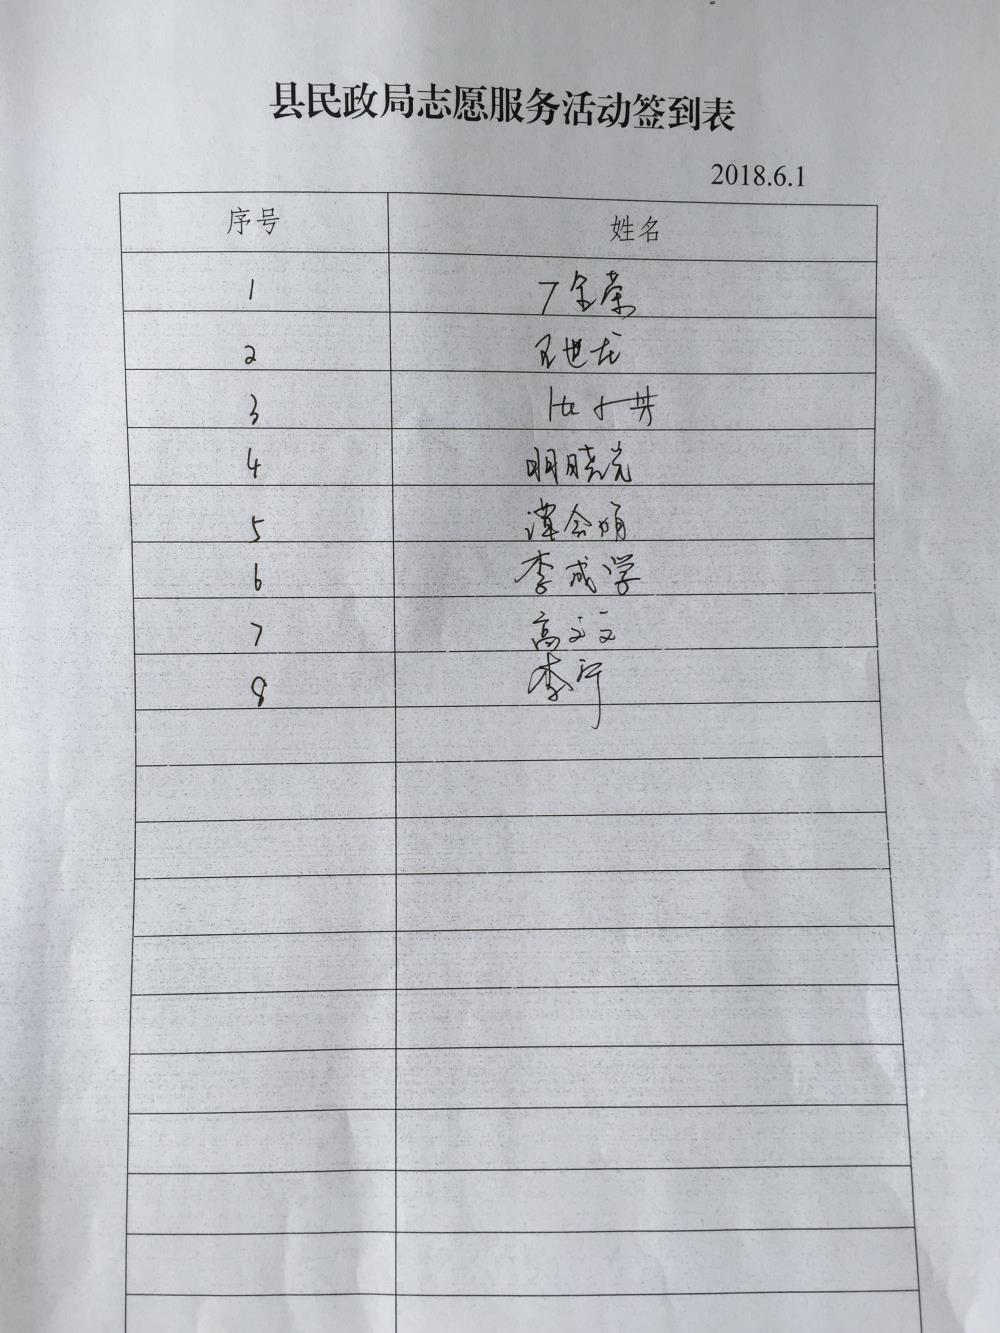 县民政局志愿服务活动签到表
2018.6.1
序号 姓名
1 丁金荣
2 王世龙
3
4 明晓党
5 谭会娟
6 李成学
7 高文文
8 李